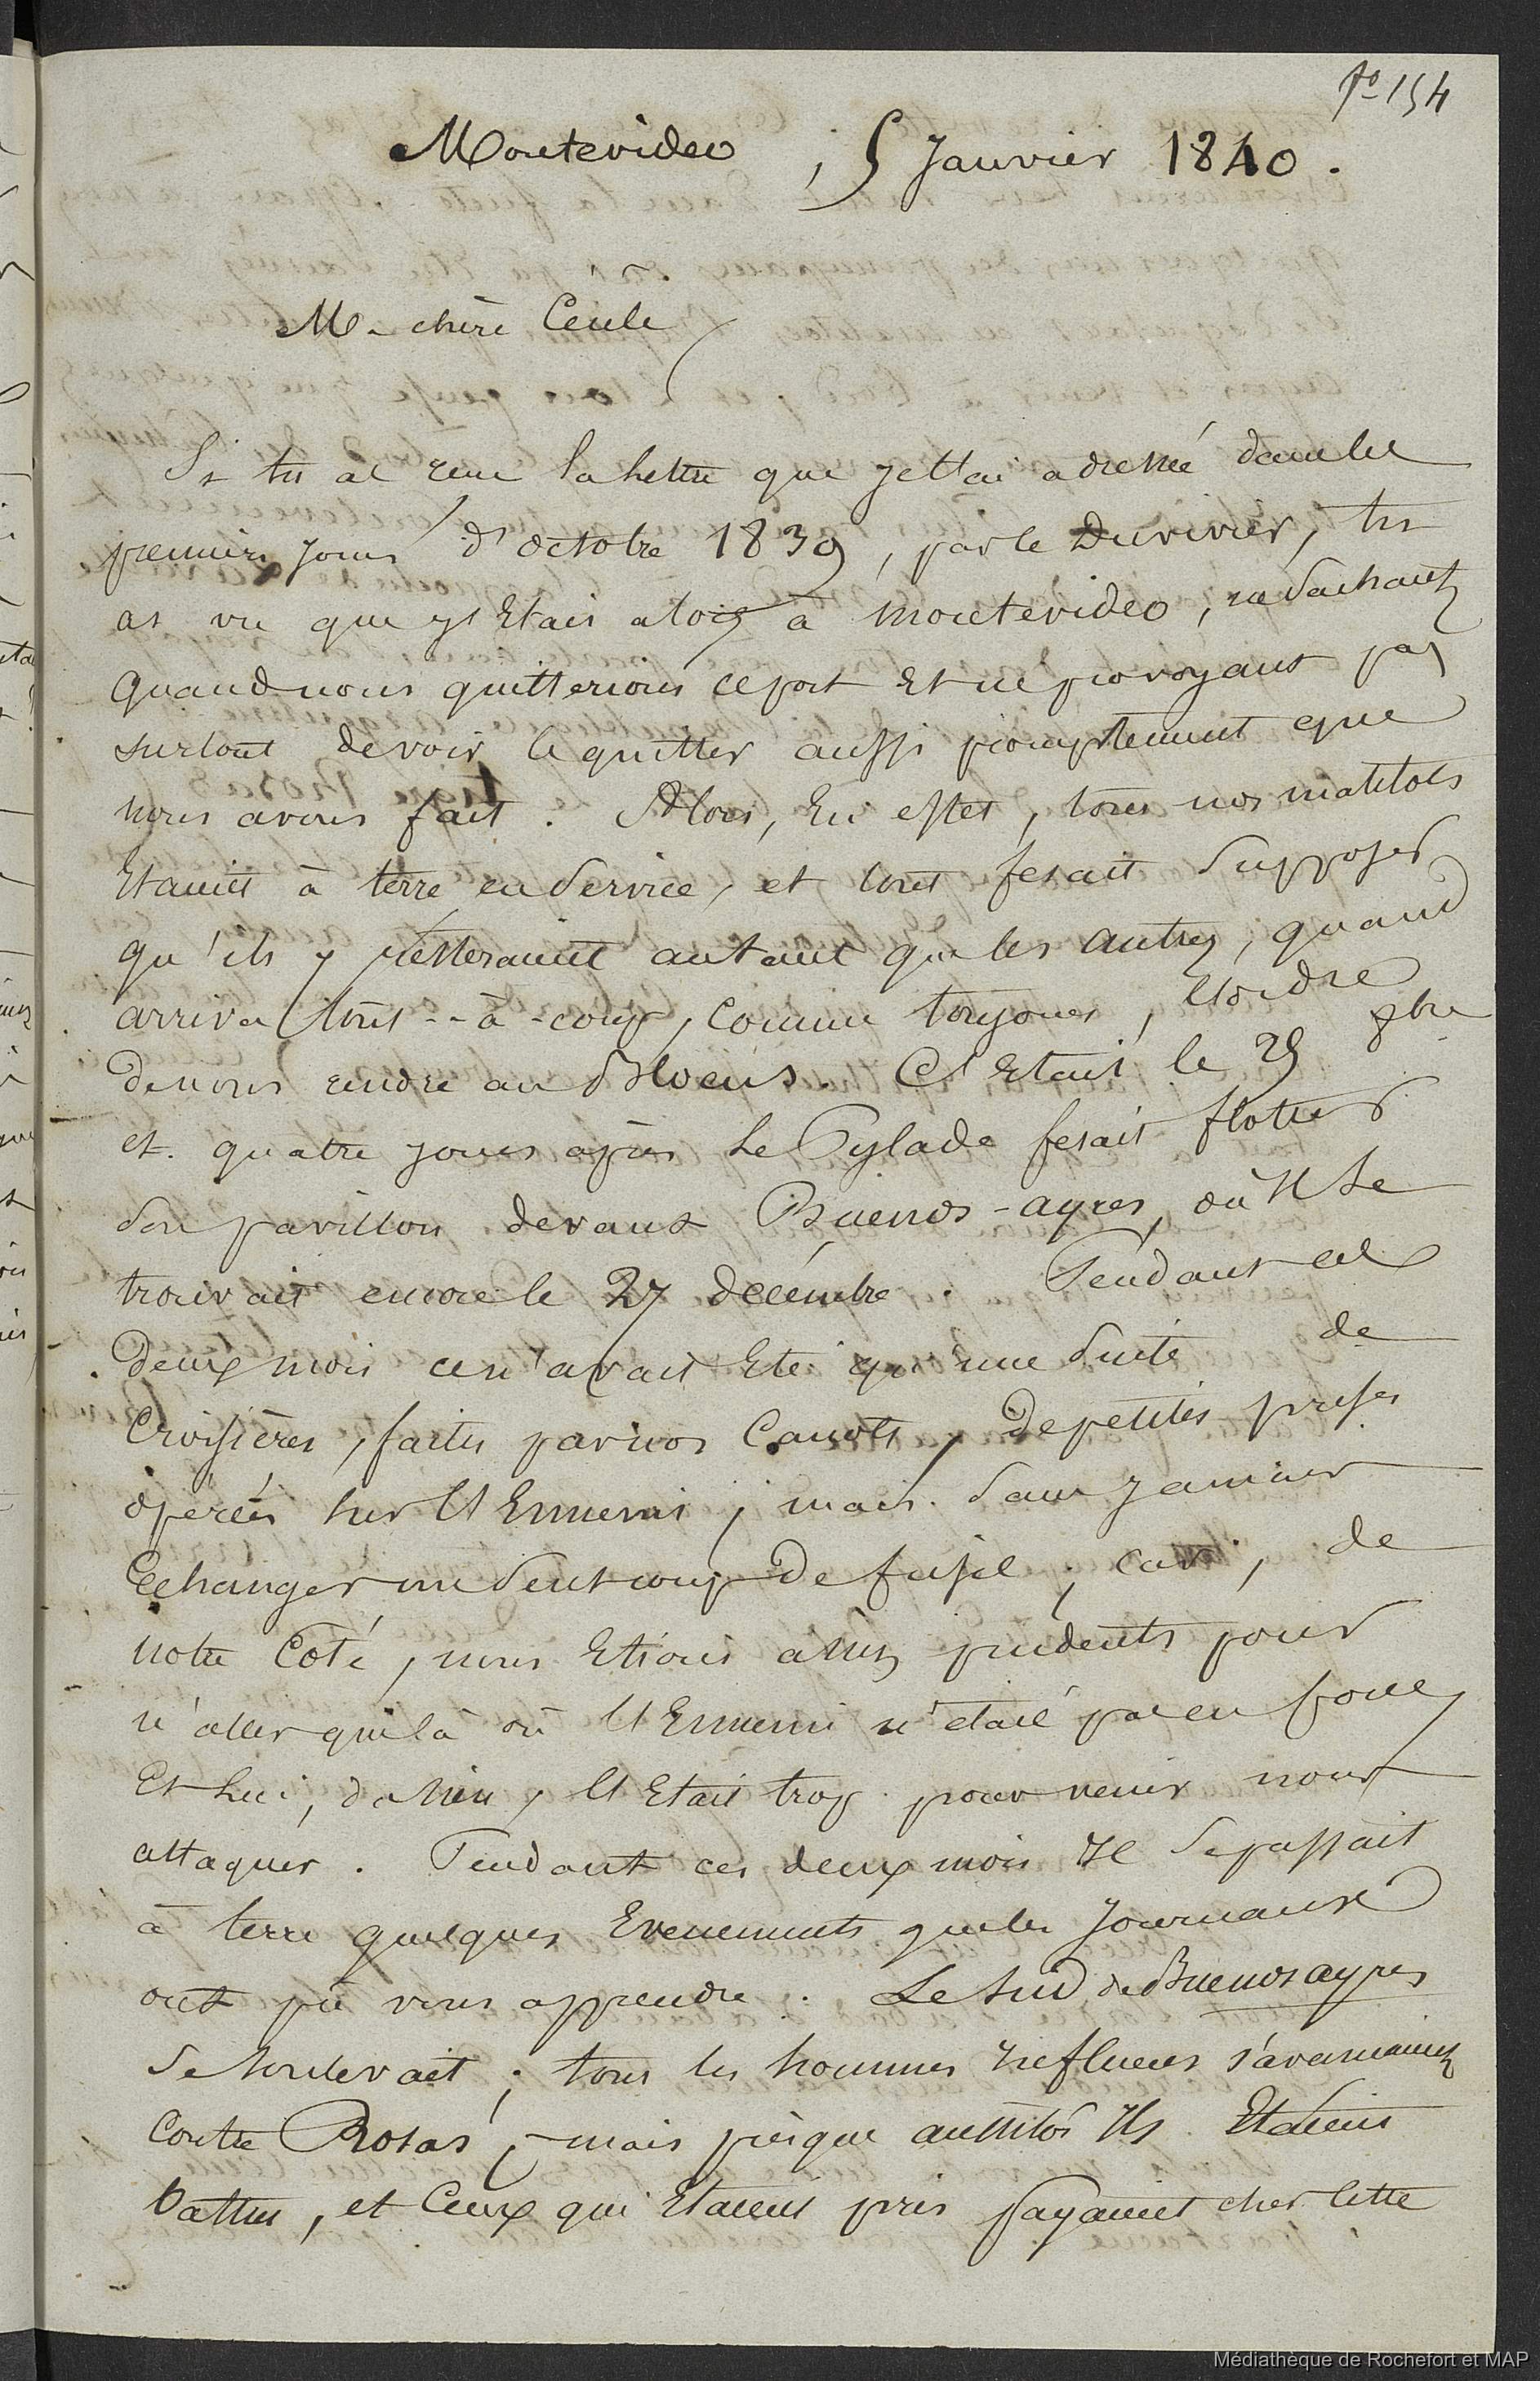 fo 154
Montevideo, 5 Janvier 1840.
Ma chère Cécile,
Si tu as reçu la lettre que je t'ai adressée dans les
premiers jours d'octobre 1839, par le Duvivier, tu
as vu que j'étais alors à Montevideo, ne sachant
quand nous quitterions ce port et ne prévoyant pas
surtout devoir le quitter aussi promptement que
nous avons fait. Alors, En effet, tous nos matelots
Etaient à terre en service, et tout fesait supposer
qu'ils y resteraient autant que les autres, quand
arriva tout-à-coup, comme toujours, l'ordre
de nous rendre au Blocus. C'Etait le 25 8bre
et quatre jours après le Pylade fesait flotter
son pavillon devant Buenos-ayres, où Il se
trouvait encore le 27 décembre. Pendant ces
deux mois ce n'avait Eté qu'une suite de
Croisières, faites par nos Canots, de petites prises
opérées sur l'Ennemi; mais sans jamais
Echanger un seul coup de fusil, car, de
notre Coté, nous Etions assez prudents pour
n'aller que là où l'Ennemi n'était pas en force,
Et lui, du sien, l'Etait trop pour venir nous
attaquer. Pendant ces deux mois Il se passait
à terre quelques Evenements que les Journaux
ont pu vous apprendre. Le Sud de Buenos ayres
se soulevait; tous les hommes Influens s'armaient
Contre Rosas, mais presque aussitôt Ils Etaient
battus, et Ceux qui Etaient pris payaient cher cette
Médiathèque de Rochefort et MAP